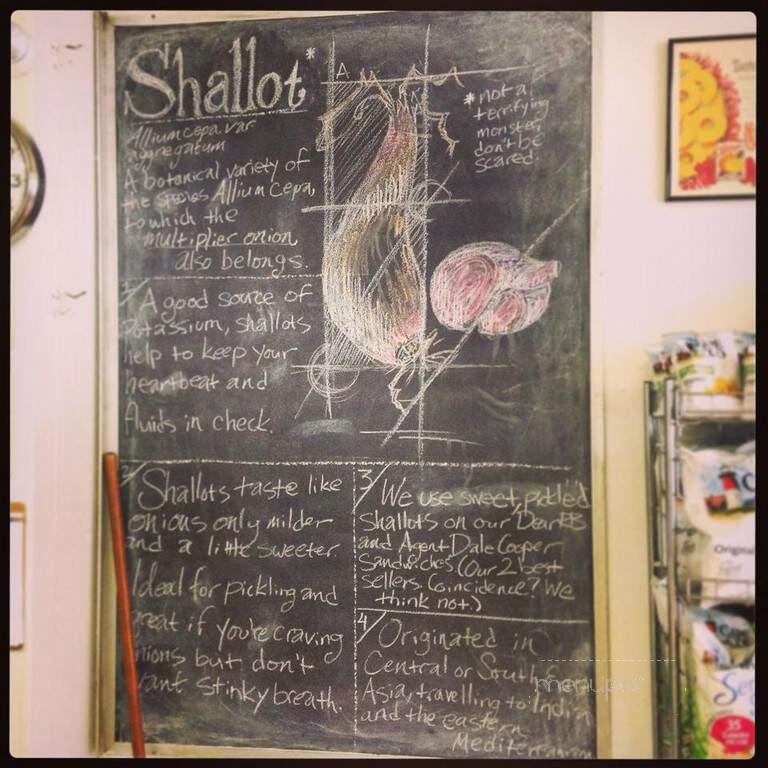 Shallot*
A
*not a
terrifying
monster,
don't be
scared.
Allium cepa. var
aggregatum
A botanical variety of
the species Allium Cepa,
to which the
multiplier onion
also belongs.
A good source of
Potassium, shallots
help to keep your
heartbeat and
fluids in check.
2/ Shallots taste like
onions only milder
and a little sweeter.
Ideal for pickling and
great if you're craving
onions but don't
want stinky breath.
3/ We use sweet, pickled
Shallots on our Dear
and Agent Dale Cooper
sandwiches. (Our 2 best
sellers. Coincidence? We
think not.)
4/ Originated in
Central or South
Asia, travelling to India
and the eastern
Mediterranean
Original
35